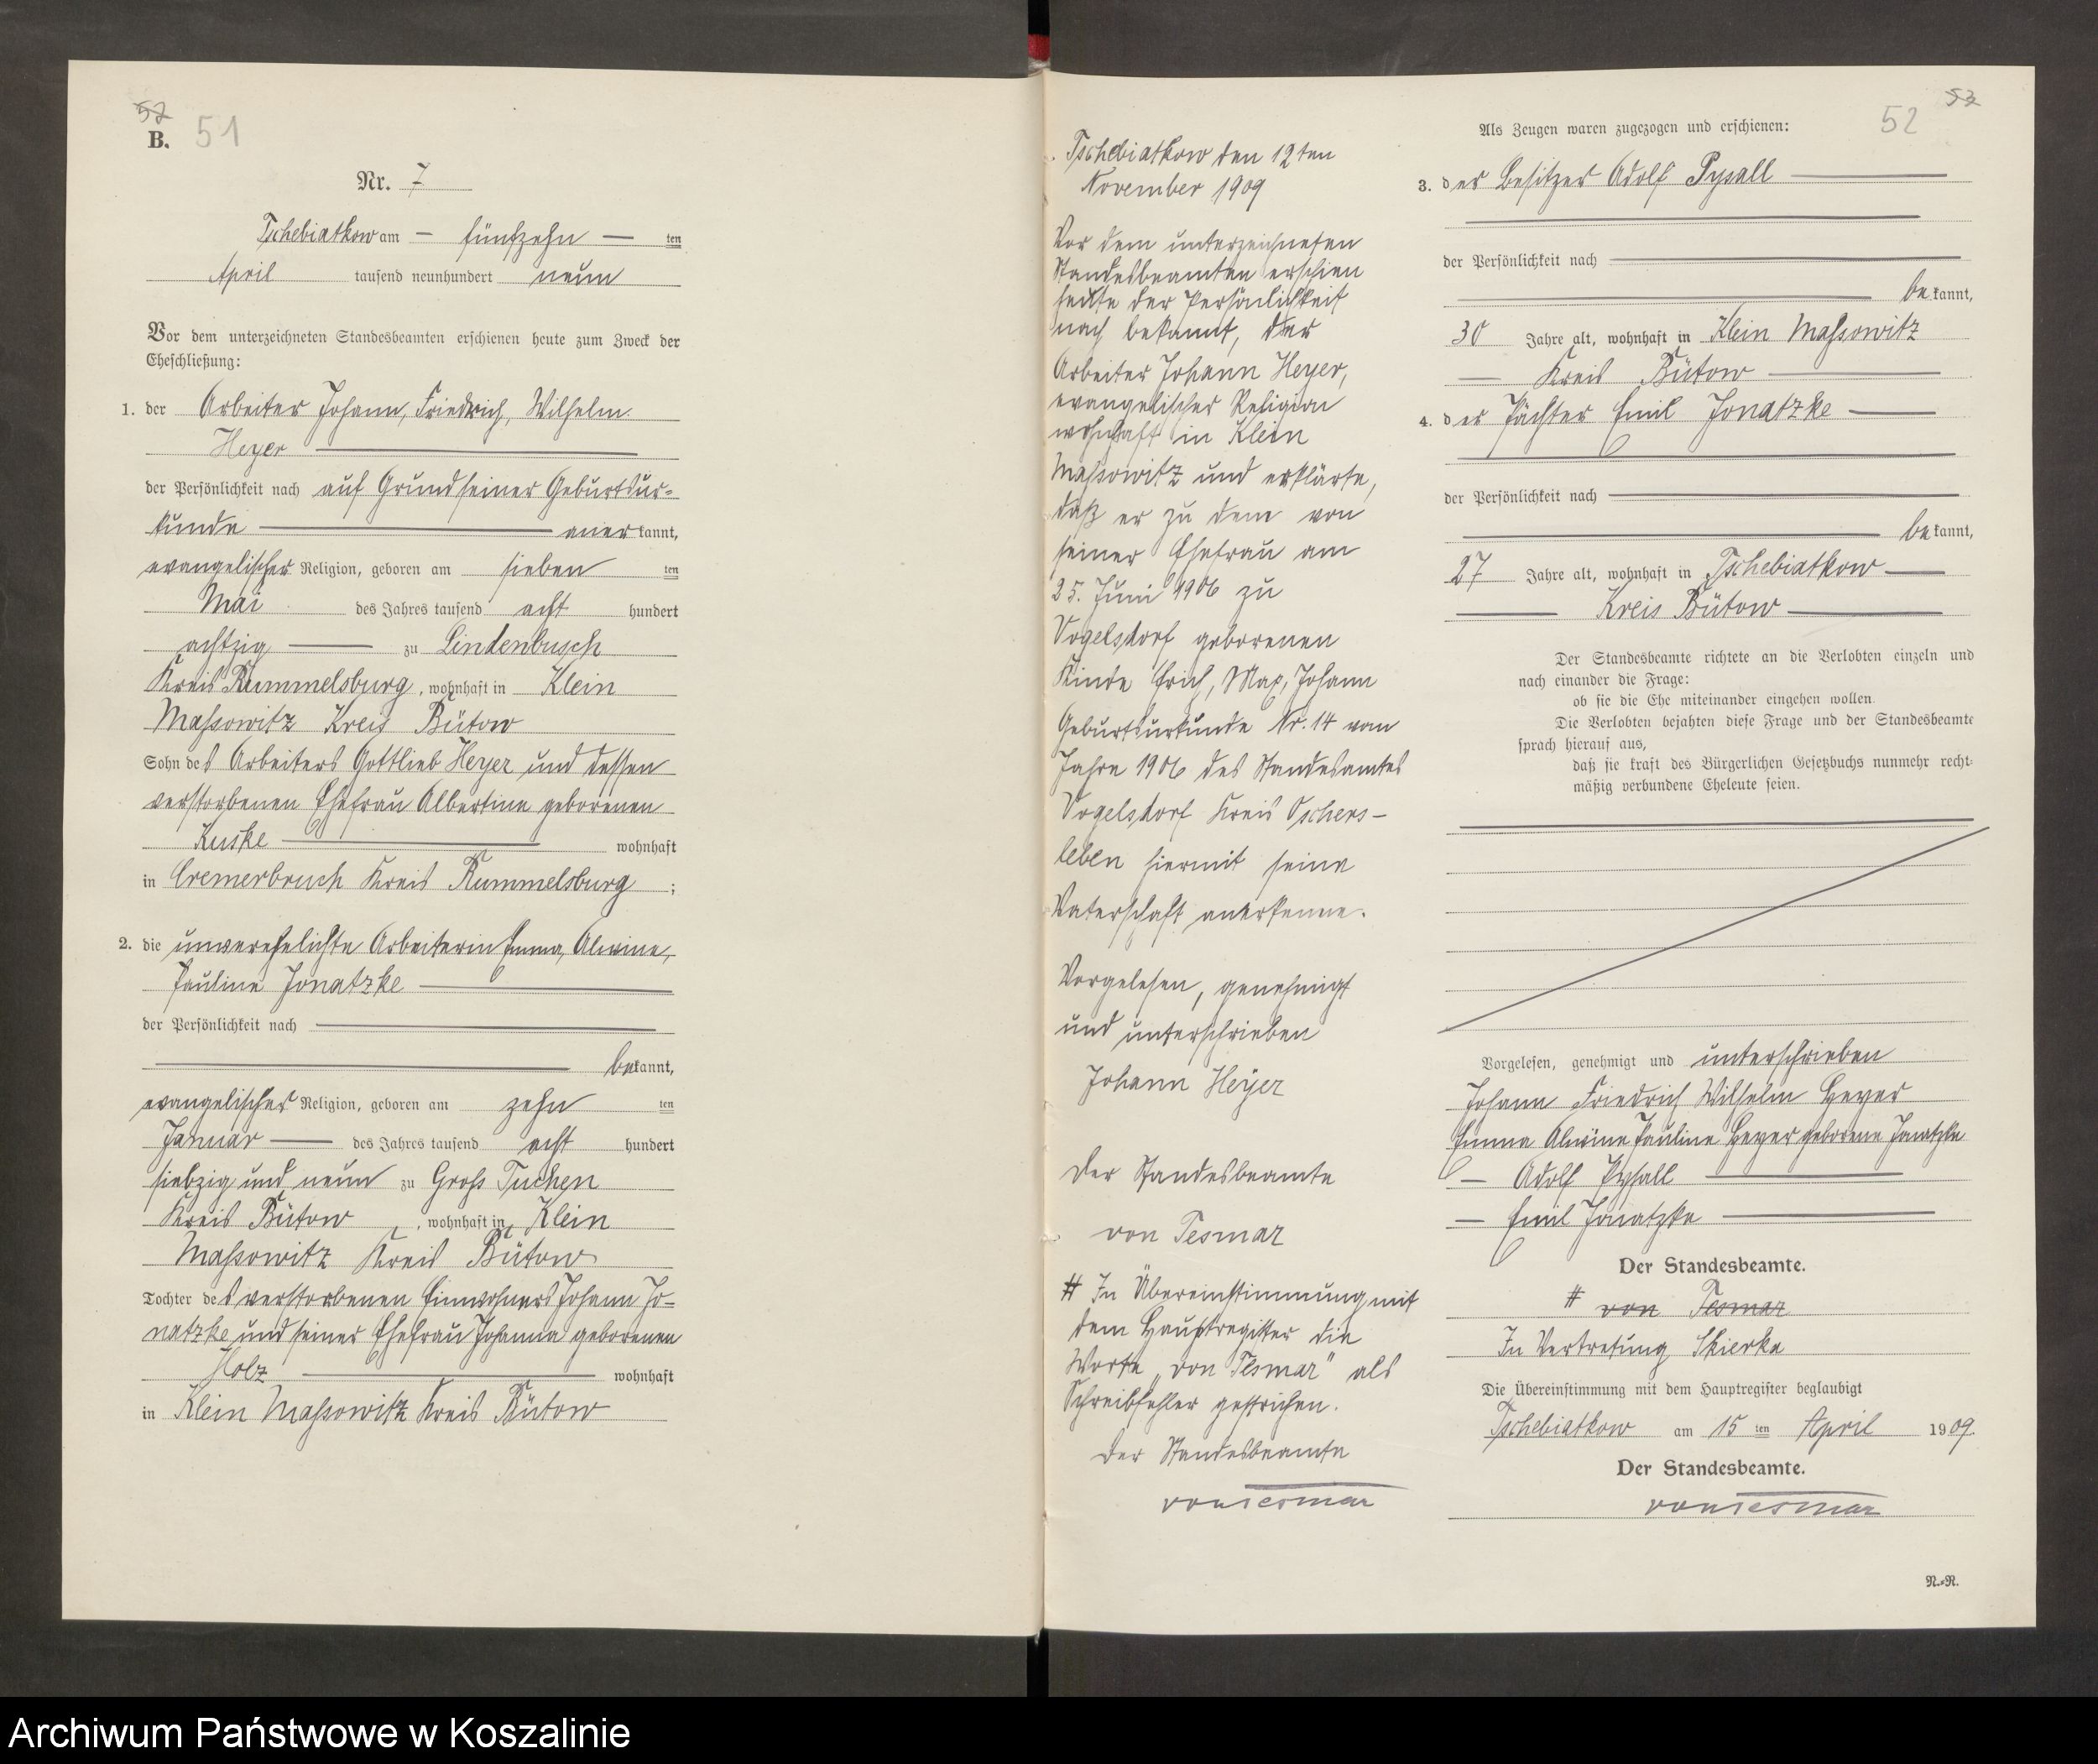 52
B. 51
Nr. 7
Tschebiatkow am — fünfzehn — ten
April tausend neunhundert neun
Vor dem unterzeichneten Standesbeamten erschienen heute zum Zweck der
Eheschließung:
1. der Arbeiter Johann, Friedrich, Wilhelm
Heyer
der Persönlichkeit nach auf Grund seiner Geburtsur=
kunde anerkannt,
evangelischer Religion, geboren am sieben ten
Mai des Jahres tausend acht hundert
achtzig zu Lindenbusch
Kreis Rummelsburg, wohnhaft in Klein
Massowitz Kreis Bütow
Sohn des Arbeiters Gottlieb Heyer und dessen
verstorbenen Ehefrau Albertine geborenen
Kuske wohnhaft
in Cremerbruch Kreis Rummelsburg ;
2. die unverehelichte Arbeiterin Emma, Alwine,
Pauline Jonatzke
der Persönlichkeit nach
bekannt,
evangelischer Religion, geboren am zehn ten
Januar des Jahres tausend acht hundert
siebzig und neun zu Gross Tuchen
Kreis Bütow, wohnhaft in Klein
Massowitz Kreis Bütow
Tochter des verstorbenen Einwohners Johann Jo=
natzke und seiner Ehefrau Johanna geborenen
Holz wohnhaft
in Klein Massowitz Kreis Bütow
Tschebiatkow den 12ten
November 1909
Vor dem unterzeichneten
Standesbeamten erschien
heute der Persönlichkeit
nach bekannt, der
Arbeiter Johann Heyer,
evangelischer Religion
wohnhaft in Klein
Massowitz und erklärte,
daß er zu dem von
seiner Ehefrau am
25. Juni 1906 zu
Vogelsdorf geborenen
Kinde Erich, Max, Johann
Geburtsurkunde Nr. 14 vom
Jahre 1906 des Standesamtes
Vogelsdorf Kreis Oschers-
leben hiermit seine
Vaterschaft anerkenne.
Vorgelesen, genehmigt
und unterschrieben
Johann Heyer
Der Standesbeamte
von Tesmar
# In Übereinstimmung mit
dem Hauptregister die
Worte „von Tesmar" als
Schreibfehler gestrichen.
Der Standesbeamte
von Tesmar
53
52
Als Zeugen waren zugezogen und erschienen:
3. der Besitzer Adolf Pysall
der Persönlichkeit nach
bekannt,
30 Jahre alt, wohnhaft in Klein Massowitz
Kreis Bütow
4. der Pächter Emil Jonatzke
der Persönlichkeit nach
bekannt,
27 Jahre alt, wohnhaft in Tschebiatkow
Kreis Bütow
Der Standesbeamte richtete an die Verlobten einzeln und
nach einander die Frage:
ob sie die Ehe miteinander eingehen wollen.
Die Verlobten bejahten diese Frage und der Standesbeamte
sprach hierauf aus,
daß sie kraft des Bürgerlichen Gesetzbuchs nunmehr recht-
mäßig verbundene Eheleute seien.
Vorgelesen, genehmigt und unterschrieben
Johann Friedrich Wilhelm Heyer
Emma Alwine Pauline Heyer geborene Jonatzke
— Adolf Pysall
— Emil Jonatzke
Der Standesbeamte.
# von Tesmar
In Vertretung Skierka
Die Übereinstimmung mit dem Hauptregister beglaubigt
Tschebiatkow am 15 ten April 1909.
Der Standesbeamte.
von Tesmar
N.=R.
Archiwum Państwowe w Koszalinie